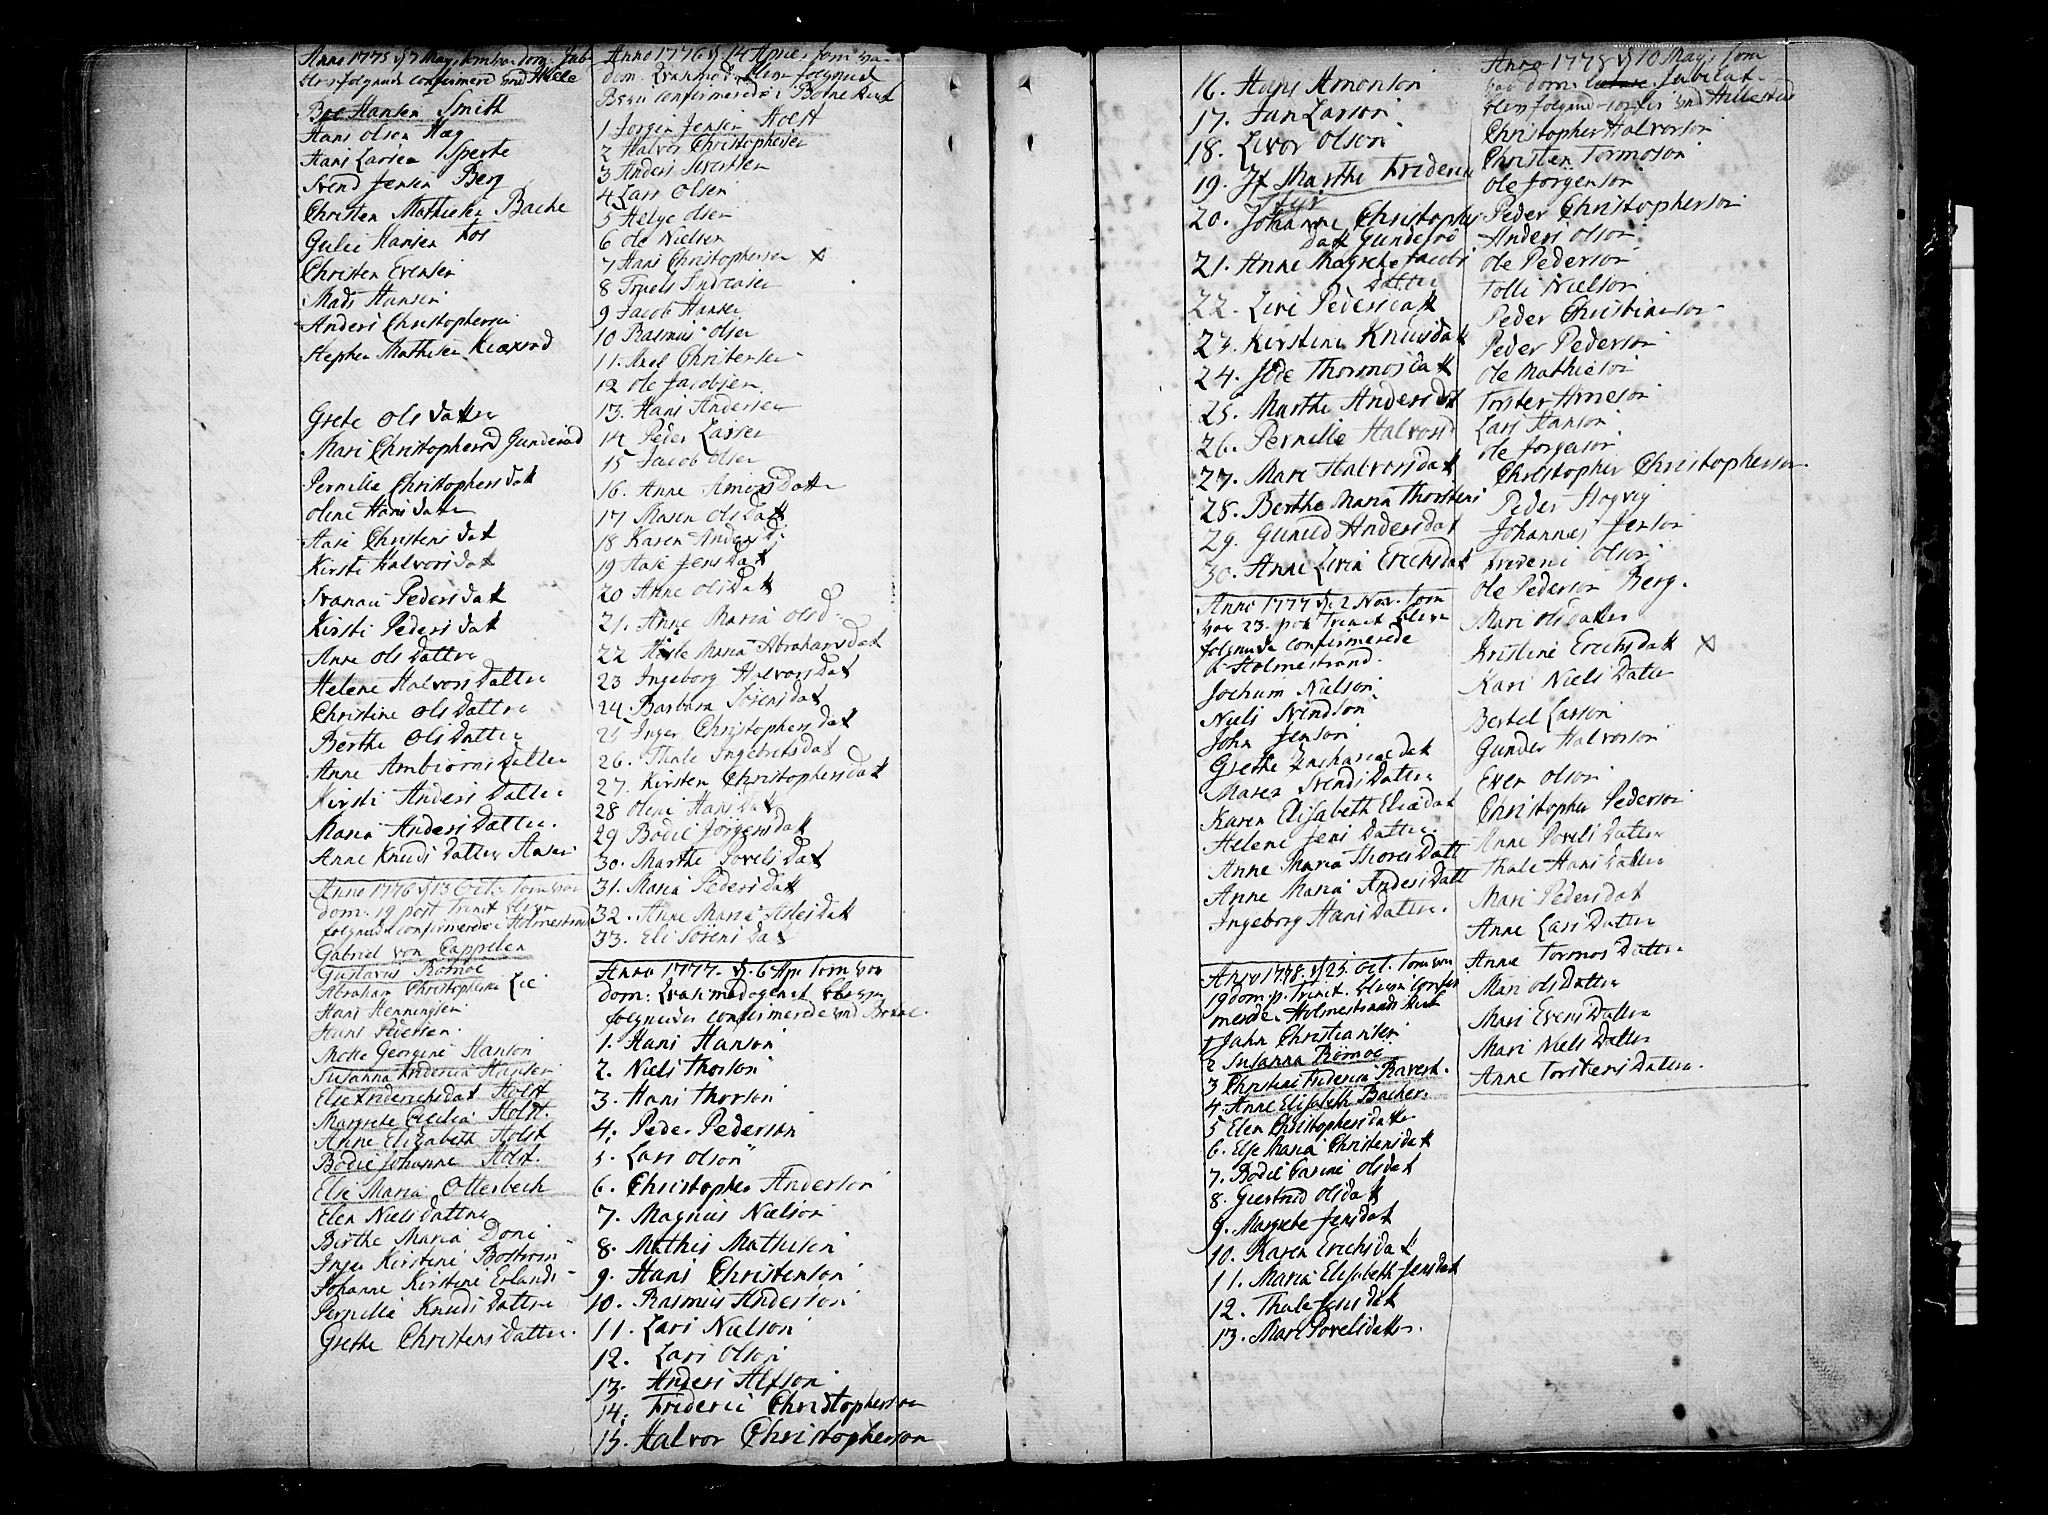 Anno 1775 d 7 May, som var dom. Jub
blev følgende confirmered ved Hkle
Boe Hansen Smith
Hans Olsen Hæg
Hans Larsen
Svend Jensen Berg
Christen Mathiesen Bache
Gulic Hansen Fos
Christen Evensen
Mads Hansen
Anders Christophersen
Stephen Mathisen
Grete Ols datter
Mari Christophersd Gunderød
Pernille Christophers datt
Olene Hans datter
Aase Christens datt
Kirsti Halvors datt
Svanau Peders datt
Kirsti Peders datt
Anne Ols datter
Helene Halvors datter
Christine Ols datter
Berthe Ols datter
Anne Ambiorns datter
Kirsti Anders datter
Maria Anders datter.
Anne Knuds datter Aasen
Anno 1776 d 13 Oct. som var
dom. 19 post Trinit blev
følgende confirmerede i Holmestrand
Gabriel von Cappelen
Gustavus Rømoe
Abraham Christophersen Lie
Hans Henningsen
Hans Petersen.
Mette Georgine Hanson
Susanna Fridericia Hansen
Else Friderichsdatt Holst
Margrete Cecilia Holst.
Anne Elizabeth Holst
Bodil Johanne Holst.
Else Maria Otterbech
Elen Niels datter
Birthe Maria Doni
Inger Kirstine Bostrøm
Johanne Kirstine Erlands-
Pernille Knuds datter
Grethe Christens datter.
Anno 1776 d. 14 April som var
dom. Qvasimod. blev følgende
Børn confirmerede i Botne Kirk
1 Jørgen Jensen Holst
2 Halvor Christophersen
3 Anders Sivertsen
4 Lars Olsen
5 Helge Olsen
6 Ole Nielsen
7 Hans Christophersen x
8 Troels Andreasen
9 Jacob Hansen
10 Rasmus Olsen
11. Axel Christensen
12 Ole Jacobsen
13. Hans Andersen
14 Peder Larsen
15 Jacob Olsen
16. Anne Amons datter
17 Maren Ols datt
18 Karen Anders d.
19 Aase Jens datt
20 Anne Ols datt
21. Anne Maria Olsd.
22 Maria Abrahams datt
23 Ingeborg Halvors datt
24 Barbara Sørens datt
25 Inger Christophers datt
26. Thale Ingebrets datt
27. Kirsten Christophers datt
28 Oleni Hans datt
29 Bodil Jörgens datt
30. Marthe Povels datt
31. Maria Peders datt
32. Anne Maria Asles datt
33. Eli Sørens datt
Anno 1777. d. 6 Apr. som var
dom: Qvasimodogenit blev
følgende confirmerede ved Botne.
1. Hans Hanson
2. Niels Thorson
3. Hans Thorson
4. Peder Pederson
5. Lars Olson
6. Christopher Anderson
7. Magnus Nielson
8. Mathis Mathison
9. Hans Christenson
10. Rasmus Anderson
11. Lars Nielson
12. Lars Olson
13. Anders Alfson
14. Frideric Christopherson
15. Halvor Christopherson
16. Hans Amonson
17. Jan Larson
18. Livor Olson
19. Jf Marthe Frideric
20. Johanne Christophers
datt Gunderød
21. Anne Magrete Jacobs
datter
22. Livi Pedersdatt
23. Kirstine Knudsdatt
24. Jøde Thormosdatt
25. Marthe Andersdatt
26. Pernille Halvorsd
27. Mari Halvorsdatt
28. Berthe Maria Thorstens
29. Gunild Andersdatt
30. Anne Livia Erichsdatt
Anno 1777 d. 2 Nov. som
var 23. post Trinit blev
følgende confirmerede
i Holmestrand.
Jochum Nielson
Niels Svendson
John Jenson
Grethe Zachariae datt
Maren Svends datter
Karen Elisabeth Eliædatt
Helene Jens datter.
Anne Maria Thores datt
Anne Maria Anders datt
Ingeborg Hans datter.
Anno 1778. d 25. Oct. som var
19 dom. p. Trinit. blev confir
merede i Holmestrands Kirk
1 Jahn Christiansen
2 Susanna Rømoe
3 Christine Friderica Ravert.
4. Anne Elisabeth Backer.
5 Elen Christophersdatter
6. Else Maria Christensdatt
7. Bodil Carine Olsdatt
8. Giertrud Olsdatt
9. Margrete Jensdatt
10. Karen Erichsdatt
11. Maria Elisabeth Jensdatt
12. Thale Jensdatt
13. Mari Povelsdatter.
Anno 1778 d 10 May, som
var dom. Jubilat-
blev følgende confir ved Hillestad
Christopher Halvorson
Christen Tormoson
Ole Jörgenson
Peder Christopherson
Anders Olson
Ole Pederson
Tolle Nielson
Peder Christinson
Peder Pederson
Ole Mathieson
Torster Arneson
Lars Hanson
Ole Jorgenson
Christopher Christopherson.
Peder Hogvig
Johannes Jenson
Frideric Olson
Ole Pederson Berg.
Mari Olsdatter
Kristine Erichsdatt x
Kari Niels datter
Bertel Larson
Gunder Halvorson
Even Olson
Christopher Pederson
Anne Povels datter
Thale Hans datter
Mari Peders datt
Anne Lars datter
Anne Tormos datter
Mari Ols datter
Mari Evens datter
Mari Niels datter
Anne Torstens datter.